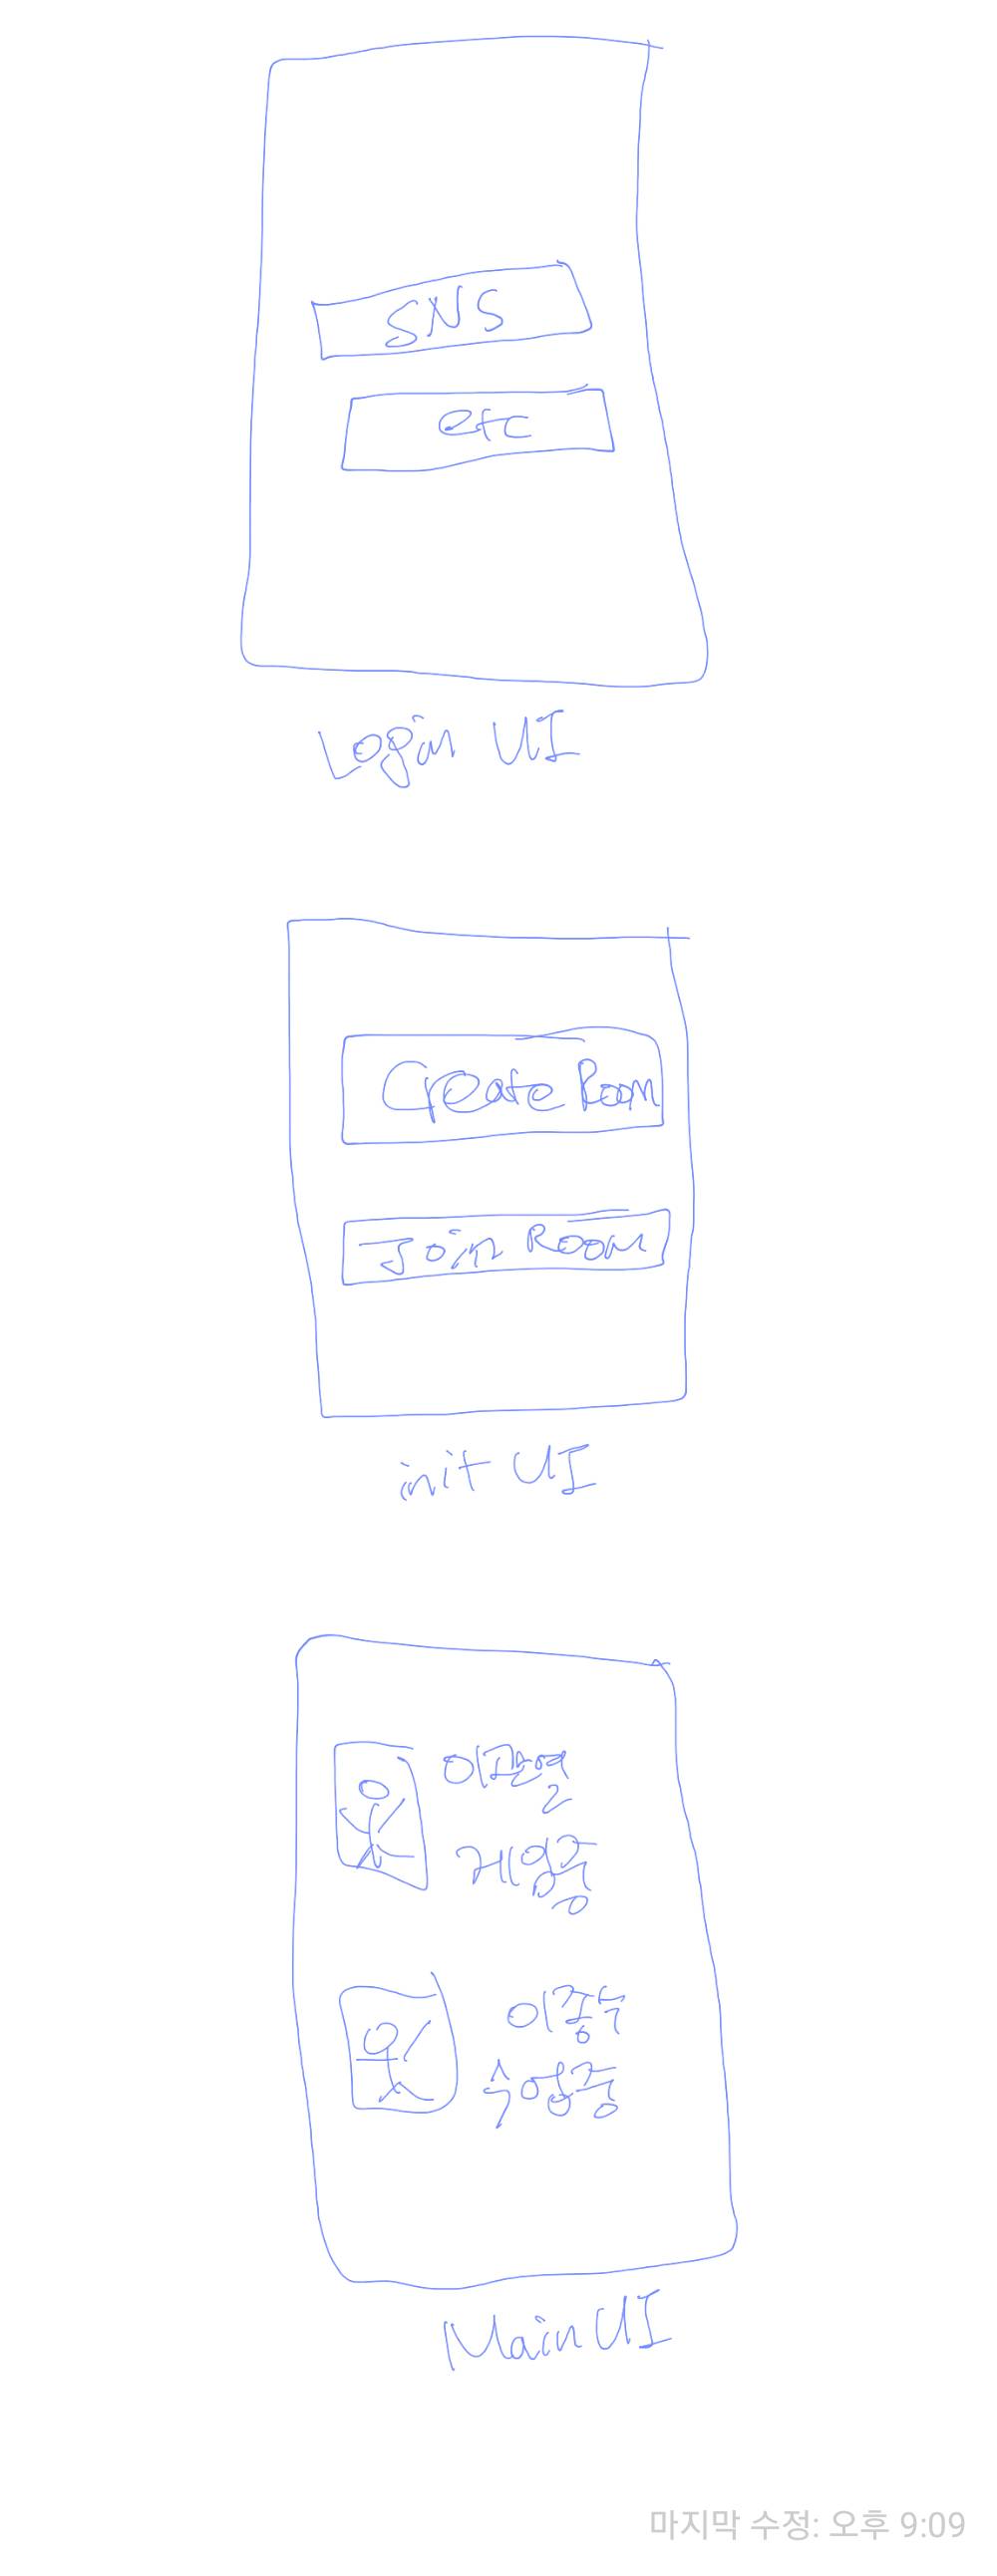 SNS
etc
Login UI
Create Room
Join Room
init UI
이관열
게임중
이종수
수영중
Main UI
마지막 수정: 오후 9:09